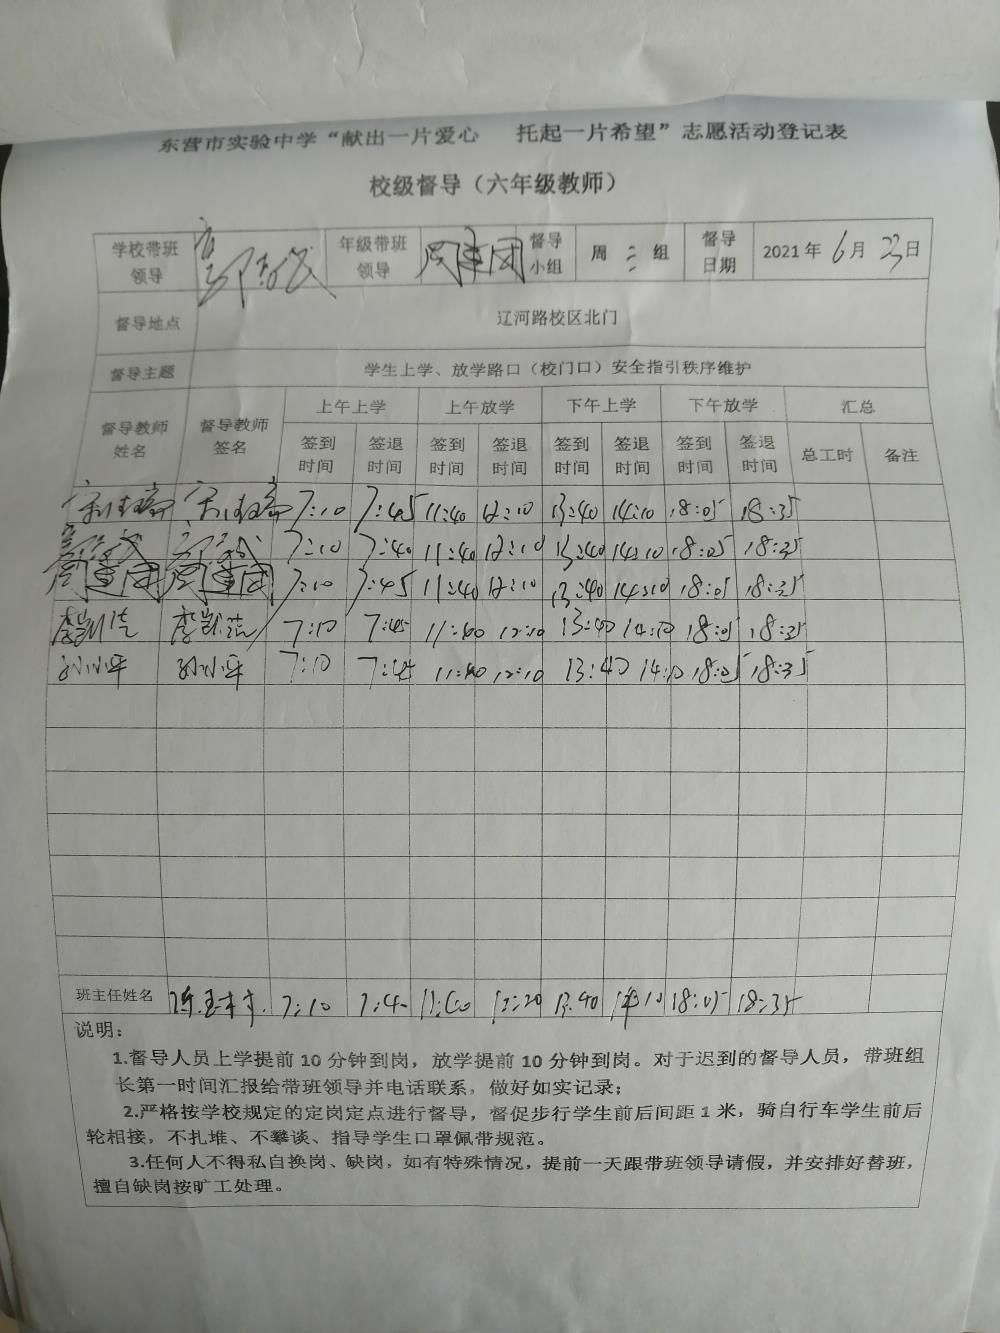 东营市实验中学“献出一片爱心 托起一片希望”志愿活动登记表
校级督导（六年级教师）
学校带班领导 年级带班领导 周建团 督导小组 周三组 督导日期 2021年6月23日
督导地点 辽河路校区北门
督导主题 学生上学、放学路口（校门口）安全指引秩序维护
督导教师姓名 督导教师签名 上午上学 上午放学 下午上学 下午放学 汇总
签到时间 签退时间 签到时间 签退时间 签到时间 签退时间 签到时间 签退时间 总工时 备注
7:10 7:45 11:40 12:10 13:40 14:10 18:05 18:35
7:10 7:40 11:40 12:10 13:40 14:10 18:05 18:35
周建团 周建团 7:10 7:45 11:40 12:10 13:40 14:10 18:05 18:35
李 李 7:10 7:45 11:40 12:10 13:40 14:10 18:05 18:35
孙小平 孙小平 7:10 7:45 11:40 12:10 13:40 14:10 18:05 18:35
班主任姓名 7:10 7:40 12:20 13:40 18:05 18:35
说明：
1.督导人员上学提前10分钟到岗，放学提前10分钟到岗。对于迟到的督导人员，带班组
长第一时间汇报给带班领导并电话联系，做好如实记录；
2.严格按学校规定的定岗定点进行督导，督促步行学生前后间距1米，骑自行车学生前后
轮相接，不扎堆、不攀谈、指导学生口罩佩带规范。
3.任何人不得私自换岗、缺岗，如有特殊情况，提前一天跟带班领导请假，并安排好替班，
擅自缺岗按旷工处理。